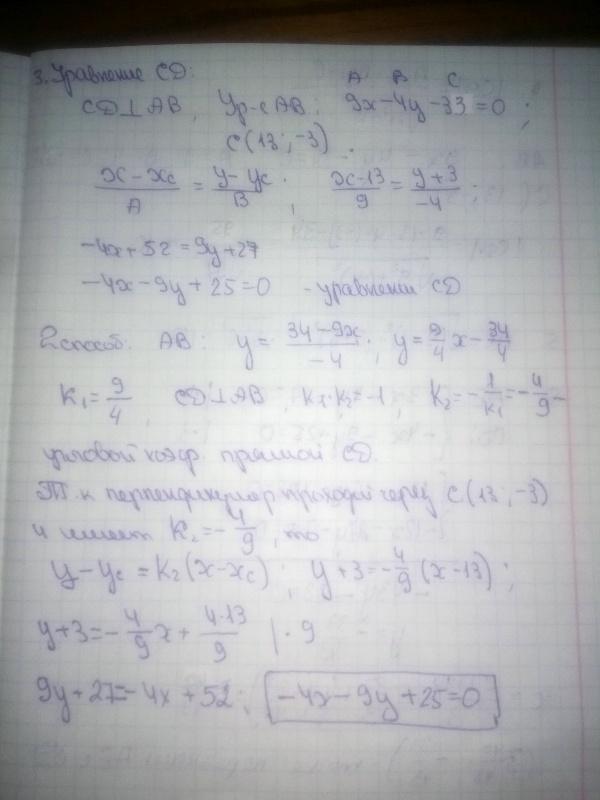 3. Уравнение CD:
A B C
CD⊥AB, Ур-е AB: 9x-4y-33=0;
C(13;-3).
(x-x_c)/A = (y-y_c)/B; (x-13)/9 = (y+3)/-4;
-4x+52=9y+27
-4x-9y+25=0 - уравнение CD
2 способ. AB: y = (34-9x)/-4; y = 9/4 x - 34/4
K₁ = 9/4, CD⊥AB, K₁·K₂=-1, K₂ = -1/K₁ = -4/9 -
угловой коэф. прямой CD.
Т.к перпендикуляр проходит через C(13;-3)
и имеет K₂ = -4/9, то
y-y_c = K₂(x-x_c); y+3 = -4/9 (x-13);
y+3 = -4/9 x + 4·13/9 |·9
9y+27=-4x+52; -4x-9y+25=0